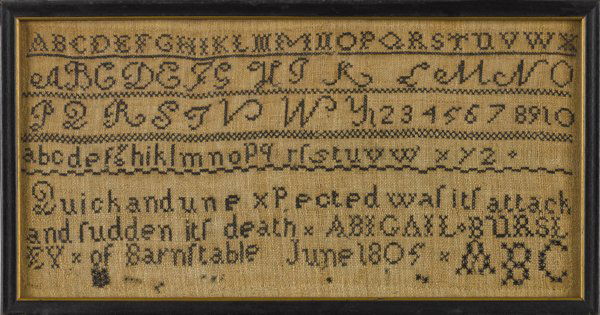 ABCDEFGHIKLMMNOPQRSTUVWX
ABCDEFG HI K LMNO
PQRSTV W Y12345678910
abcdefghiklmnopq rſstuvw xyz
Quickandune xPected waſ itſ attack
and ſudden itſ death x ABIGAIL x BURSL
EY x of Barnſtable June 1805 x ABC